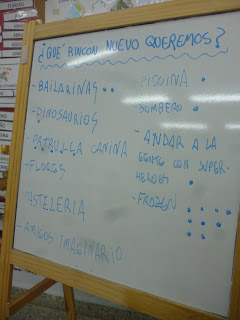 ¿QUÉ RINCÓN NUEVO QUEREMOS?
- BAILARINAS
- DINOSAURIOS
- PATRULLA CANINA
- FLORES
- PASTELERIA
- AMIGOS IMAGINARIO
PISCINA
BOMBERO
- AYUDAR A LA
GENTE CON SUPER-
HEROES
- FROZEN